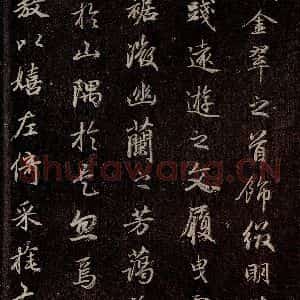 金翠之首飾綴明
踐遠遊之文履曳
裾微幽蘭之芳藹
於山隅於是忽焉
以嬉左倚采旄
shufawang.CN